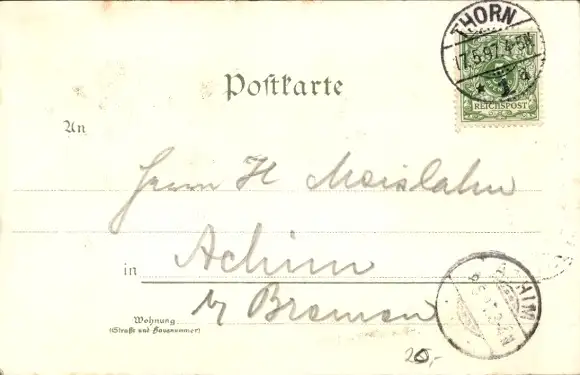 THORN
17.5.97.4-5N
REICHSPOST
Postkarte
An
Herrn H Meislahn
in Achim
by Bremen
Wohnung
(Straße und Hausnummer)
HIM
20,-